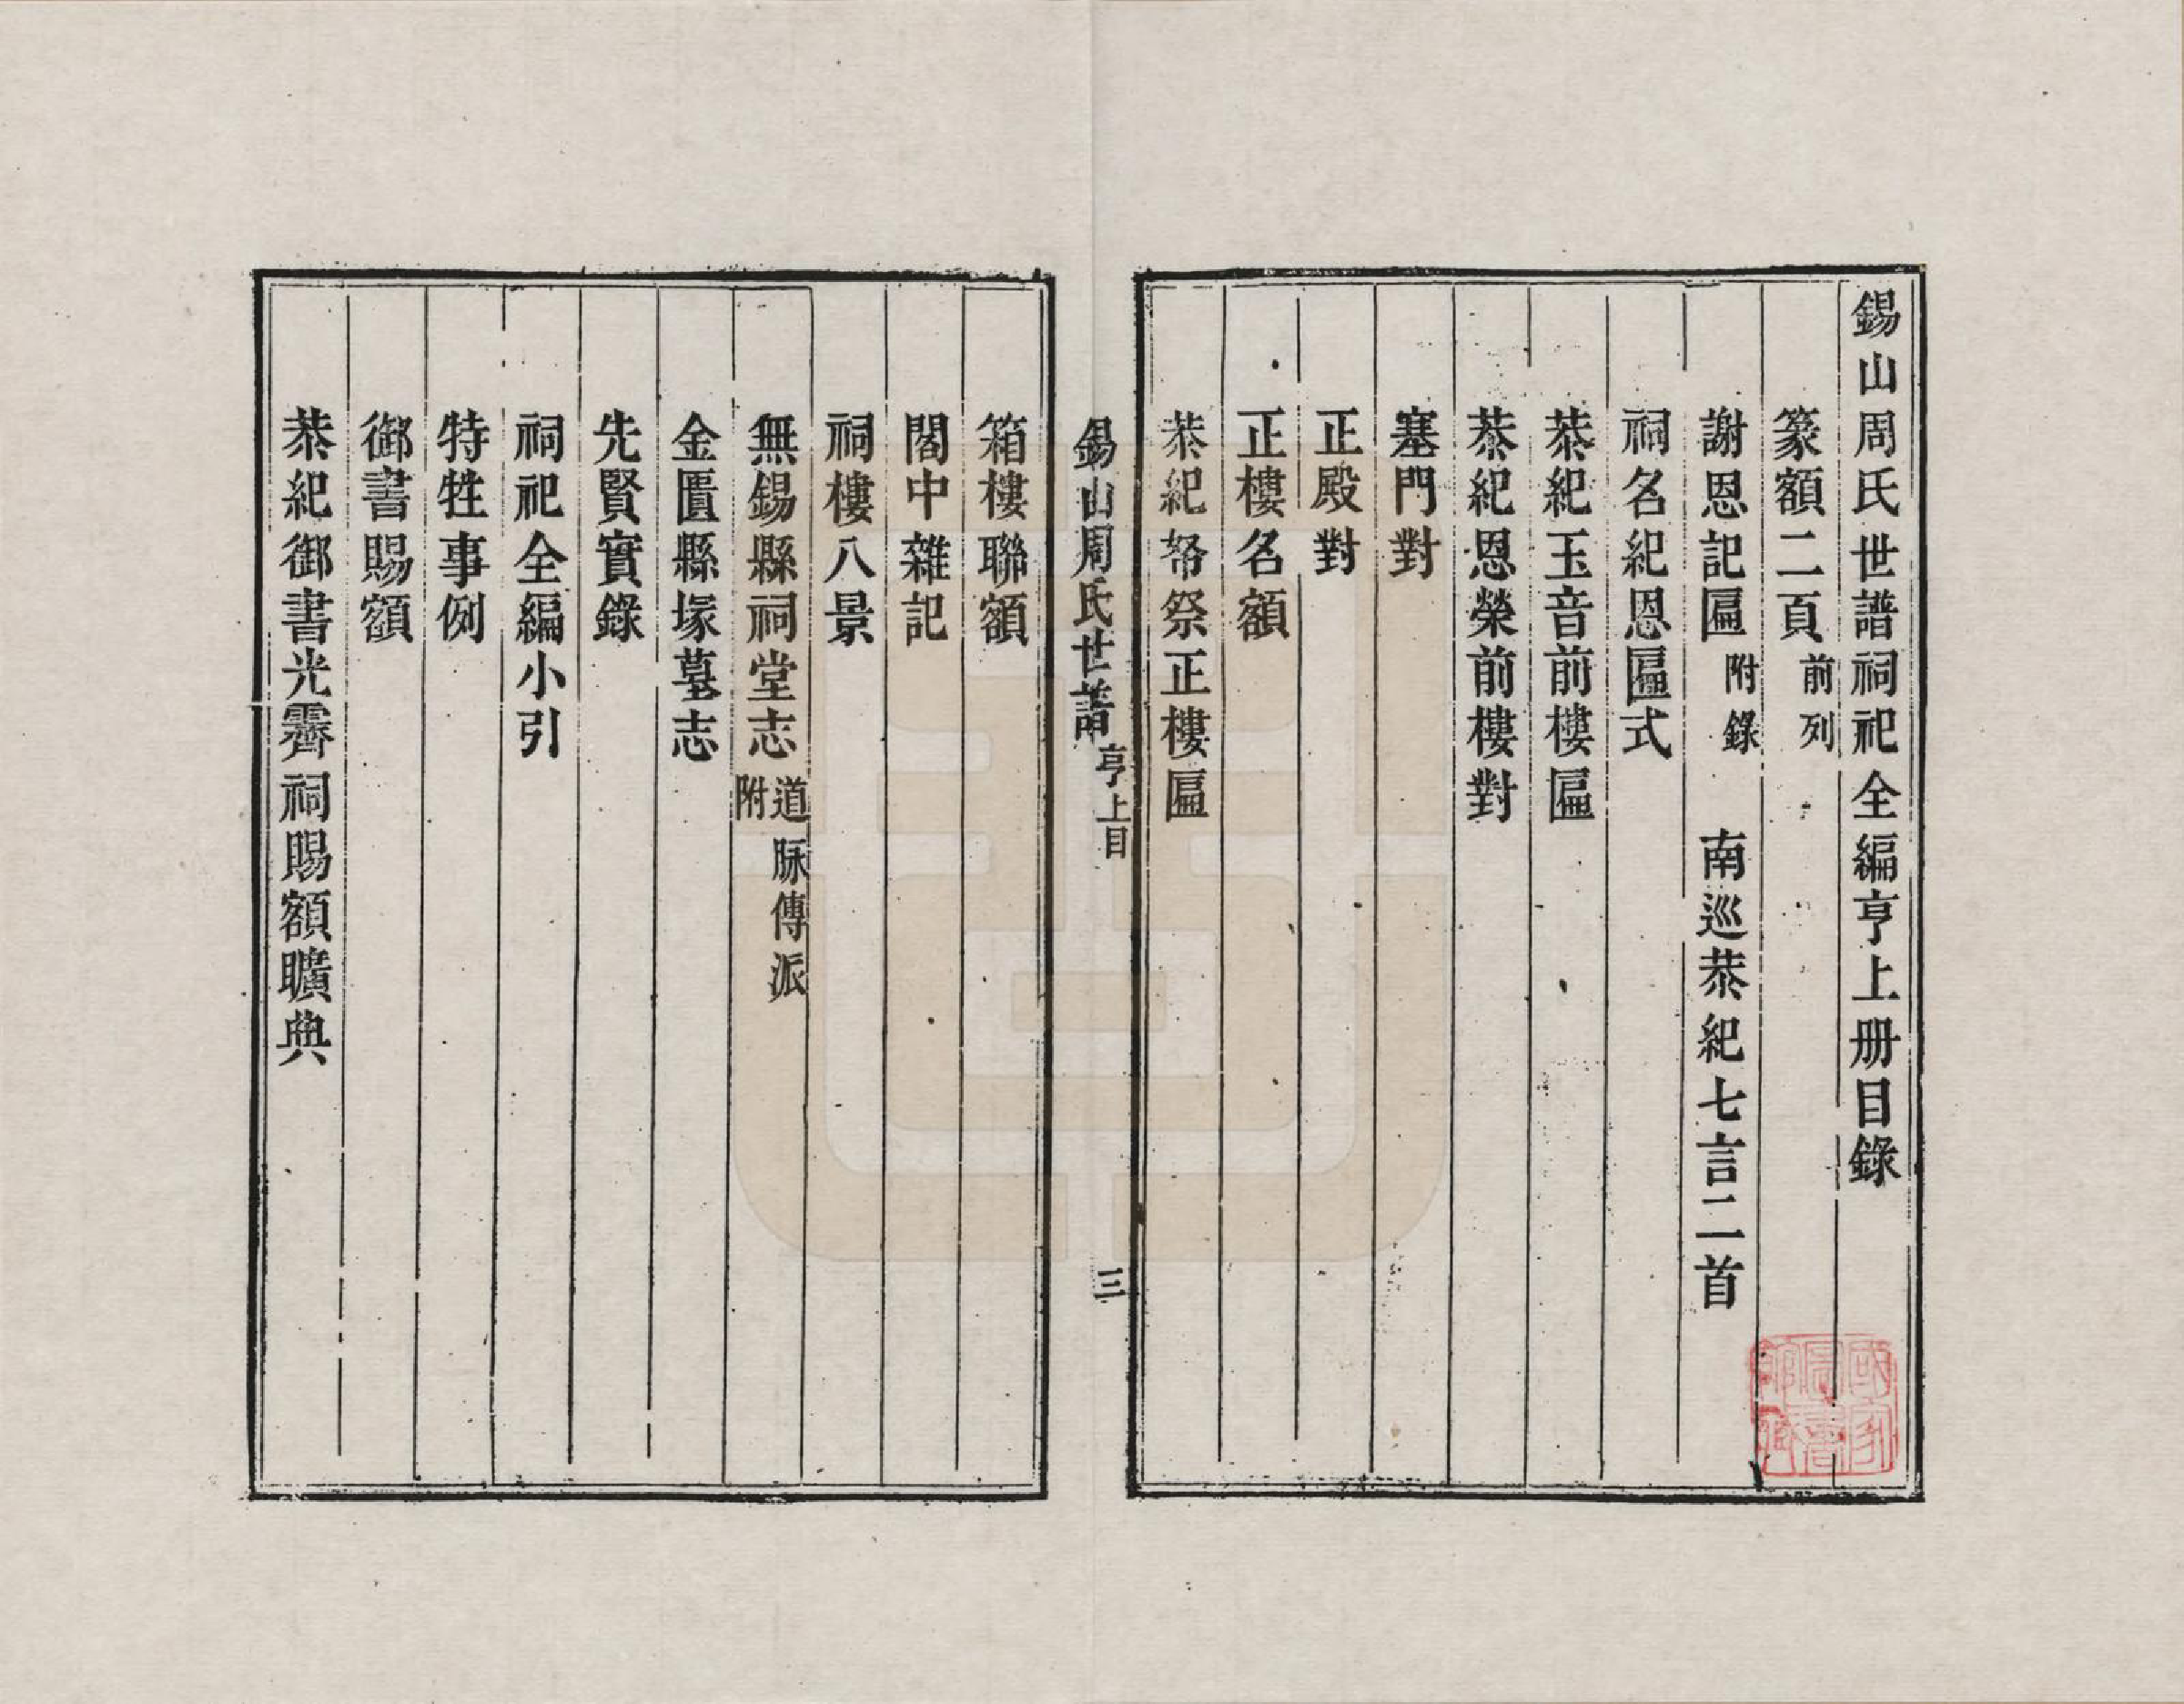 錫山周氏世譜祠祀全編亨上册目錄
篆額二頁前列
謝恩記匾附錄 南巡恭紀七言二首
祠名紀恩匾式
恭紀玉音前樓匾
恭紀恩榮前樓對
塞門對
正殿對
正樓名額
恭紀帑祭正樓匾
錫山周氏世譜 亨上目 三
箱樓聯額
閣中雜記
祠樓八景
無錫縣祠堂志附道脉傳派
金匱縣塚墓志
先賢實錄
祠祀全編小引
特牲事例
御書賜額
恭紀御書光霽祠賜額曠典
國家圖書館藏